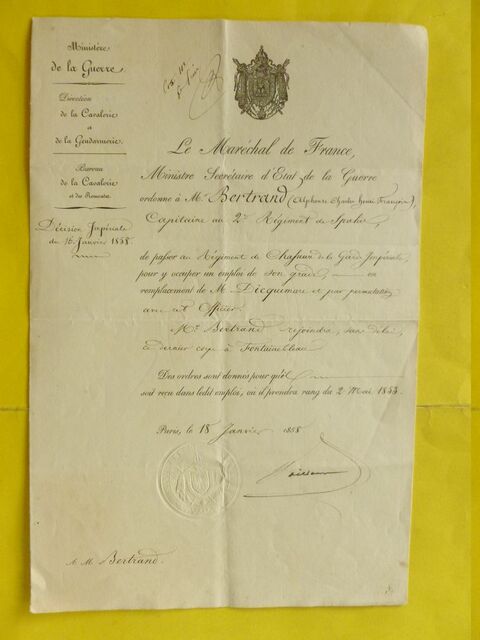 Ministère
de la Guerre.
Direction
de la Cavalerie
et
de la Gendarmerie.
Bureau
de la Cavalerie
et des Remontes.
Décision Impériale
du 16 Janvier 1858.
Le Maréchal de France,
Ministre Secrétaire d'Etat de la Guerre
ordonne à Mr. Bertrand (Alphonse Charles Henri François),
Capitaine au 2e Régiment de Spahis,
de passer au Régiment de Chasseurs de la Garde Impériale
pour y occuper un emploi de son grade, en
remplacement de M. Dicquemare et par permutation
avec cet Officier.
Mr. Bertrand rejoindra, sans délai,
ce dernier corps à Fontainebleau
Des ordres sont donnés pour qu'il
soit reçu dans ledit emploi, où il prendra rang du 2 Mai 1853.
Paris, le 18 Janvier 1858.
Vaillant
A M. Bertrand.